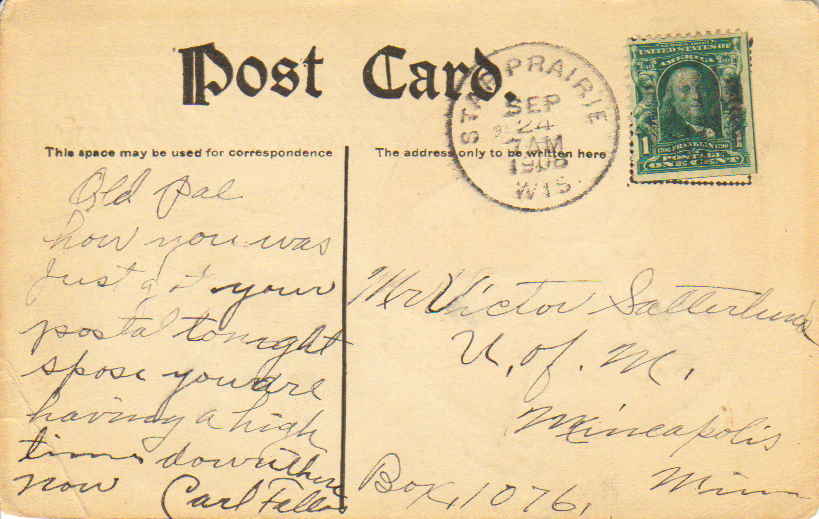 Post Card.
STAR PRAIRIE
SEP
24
7AM
1908
WIS.
UNITED STATES OF AMERICA
1
1706 FRANKLIN 1790
POSTAGE
ONE CENT
This space may be used for correspondence
The address only to be written here
Old Pal
how you was
just got your
postal tonight
spose you are
having a high
time down there
now Carl
Mr Victor Satterlund
U. of. M.
Mineapolis
Box, 1076, Minn